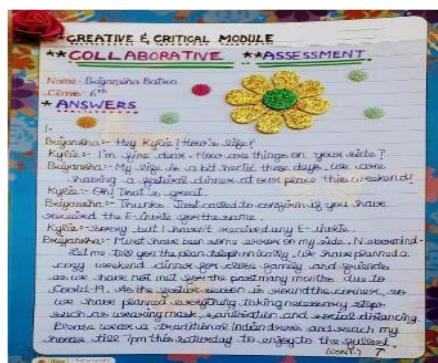 *CREATIVE & CRITICAL MODULE
**COLLABORATIVE **ASSESSMENT
Name- Briyansha
Class- 6th
* ANSWERS
1-
Briyansha:- Hey Kylie! How's life?
Kylie:- I'm fine dear. How are things on your side?
Briyansha:- My life is a bit hectic these days. We are
having a festival dinner at our place this weekend!
Kylie:- Oh! That is great.
Briyansha:- Thanks. Just called to confirm if you have
received the E-invite for the same.
Kylie:- Sorry, but I haven't received any E-invite.
Briyansha:- Must have been some error on my side. Nevermind-
Let me tell you the plan telephonically. We have planned a
cozy weekend dinner for close family and friends
as we have not met for the past many months due to
Covid-19. As the festive season is round the corner, so
we have planned everything taking necessary steps
such as wearing mask, sanitization and social distancing.
Please wear a traditional Indian dress and reach my
house till 7pm this saturday to enjoy to the fullest.
(CONT.)